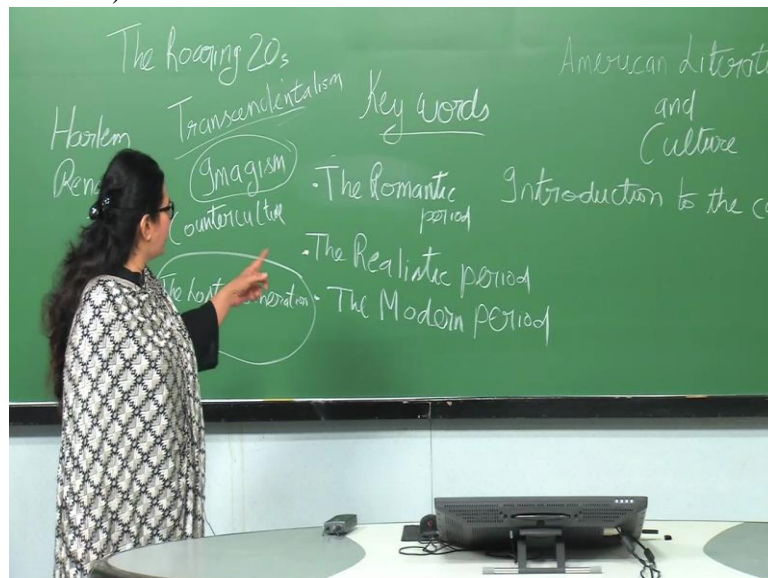 The Roaring 20s
Transcendentalism
Harlem
Rena
Imagism
Counterculture
The Lost Generation
Key words
• The Romantic
period
• The Realistic period
• The Modern period
American Literat
and
Culture
Introduction to the co